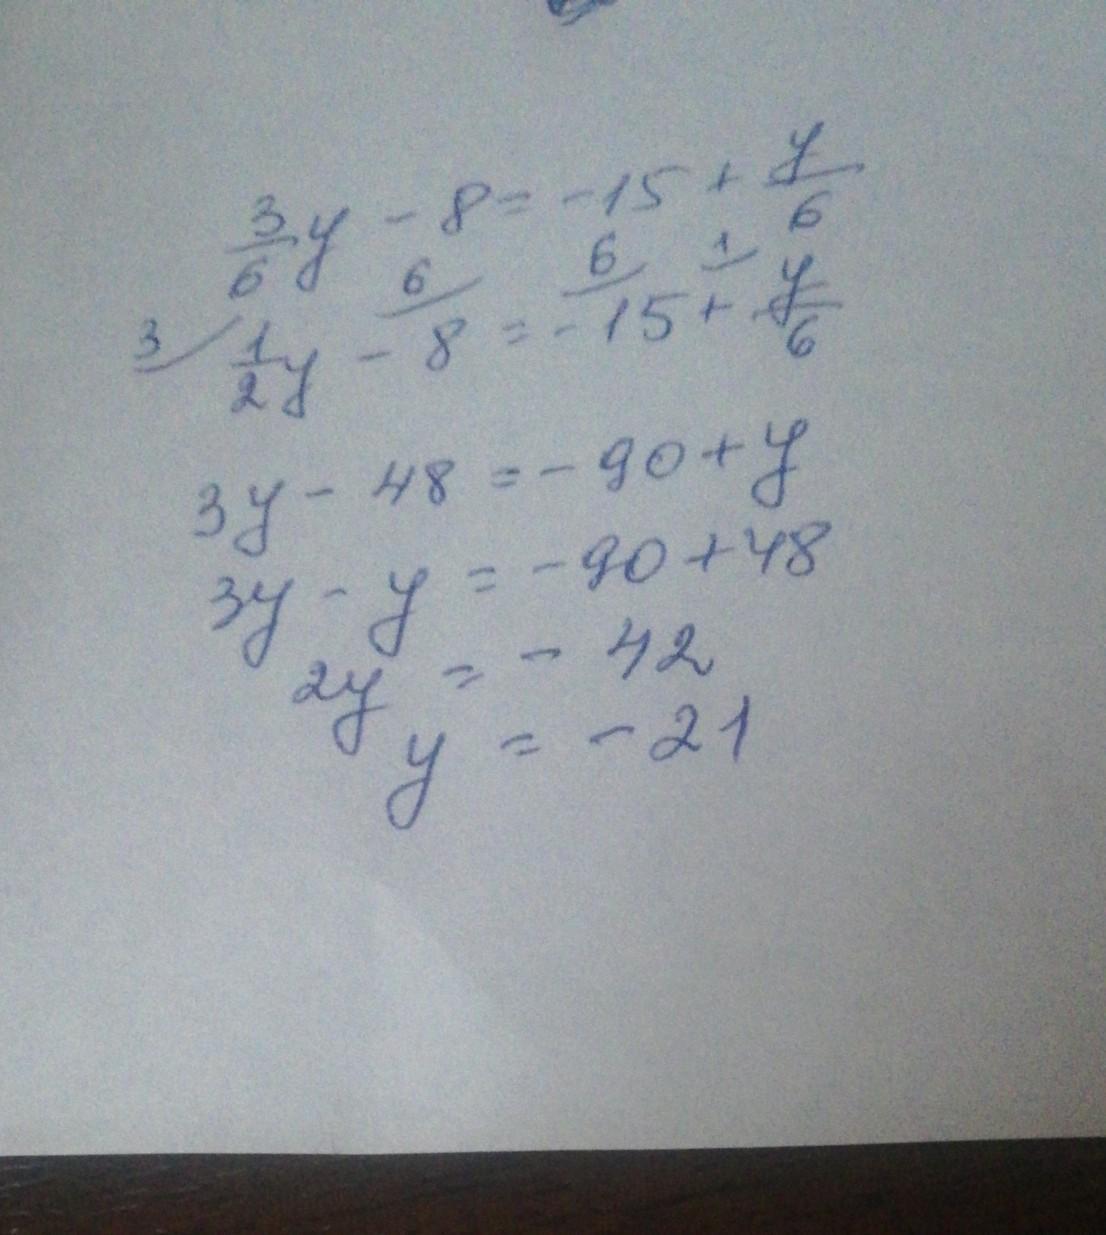 3/6 y - 8 = -15 + y/6
3/ 1/2 y - 6/ 8 = - 6/ 15 + 1/ y/6
3y - 48 = - 90 + y
3y - y = - 90 + 48
2y = - 42
y = - 21